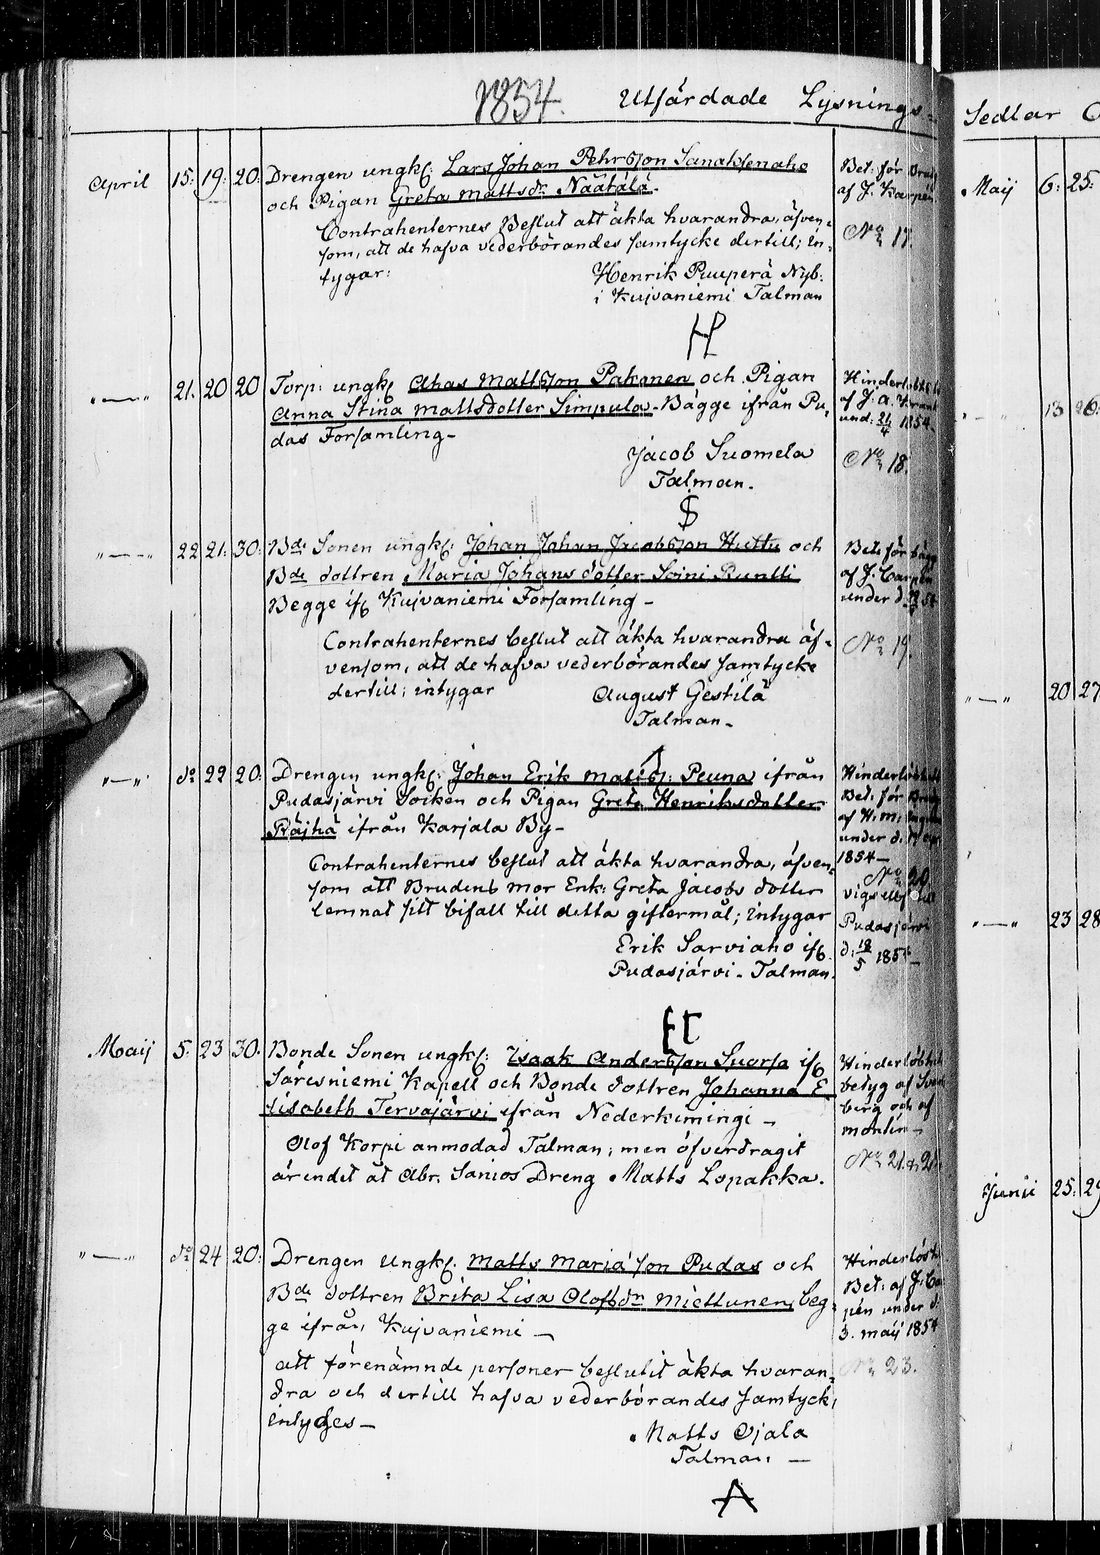 1854. Utfärdade Lysnings-
April 15. 19. 20. Drengen ungk: Lars Johan Pehrsson Sanaksenaho
och Pigan Greta Mattsdr Näätälä.
Contrahenternes Beslut att äkta hvarandra, äfven-
som, att de hafva vederbörandes samtycke dertill; in-
tygar:
Henrik Puuperä Nyb:
i Kuivaniemi Talman
H
Bet: för
af J. Karpén
No 17.
"—" 21. 20 20 Torp: ungk: Ahas Mattsson Pakanen och Pigan
Anna Stina Mattsdotter Simpula. Bägge ifrån Pu-
das Församling-
Jacob Suomela
Talman.
af J. A.
und: 21/4 1854.
No 18.
"—" 22 21. 30. Bde Sonen ungk: Johan Johan Jacobsson Huttu och
Bde dottren Maria Johans dotter Soini Runtti
Begge ifr Kuivaniemi Församling -
Contrahenternes beslut att äkta hvarandra äf-
vensom, att de hafva vederbörandes samtycke
dertill; intygar
August Gestilä
Talman-
A
Bet: för
af J. Carpén
under d.
No 19.
"—" do 22 20. Drengen ungk: Johan Erik Matss: Peuna ifrån
Pudasjärvi Socken och Pigan Greta Henriksdotter
Räihä ifrån Karjala By-
Contrahenternes beslut att äkta hvarandra, äfven-
som att Brudens mor Enk: Greta Jacobs dotter
lemnat sitt bifall till detta giftermål; intygar
Erik Sarviaho ifr.
Pudasjärvi. Talman.
Bet: för
af H. M.
under d.
1854-
No 20
Pudasjärvi
d: 18/5 1854-
Maij 5. 23 30. Bonde Sonen ungk: Isaak Andersson Suorsa ifr
Säresniemi Kapell och Bonde dottren Johanna E-
lisabeth Tervajärvi ifrån Nederkimingi -
Olof Korpi anmodad Talman; men öfverdragit
ärendet åt Abr. Sanios Dreng Matts Lopakka.
betyg af
berg och af
No 21.
"—" do 24 20. Drengen Ungk: Matts Mariä son Pudas och
Bde dottren Brita Lisa Olofsdr Miettunen, beg-
ge ifrån Kuivaniemi -
att förenämnde personer beslutit äkta hvaran-
dra och dertill hafva vederbörandes samtyck,
intyges-
Matts Ojala
Talman -
A
Bet: af J: Car
pén under d:
3. maij 1854
No 23.
Sedlar
Maij 6. 25.
13 26.
"—" 20 27
"—" 23 28
Junii 25. 29